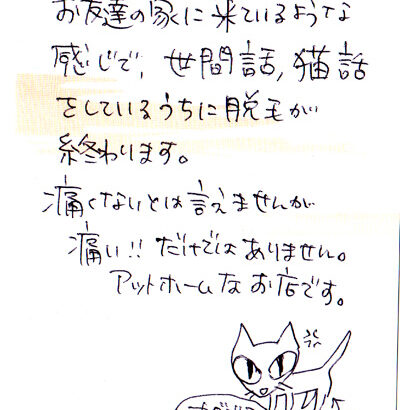 お友達の家に来ているような
感じで、世間話,猫話
をしているうちに脱毛が
終わります。
痛くないとは言えませんが
痛い!!だけではありません。
アットホームなお店です。